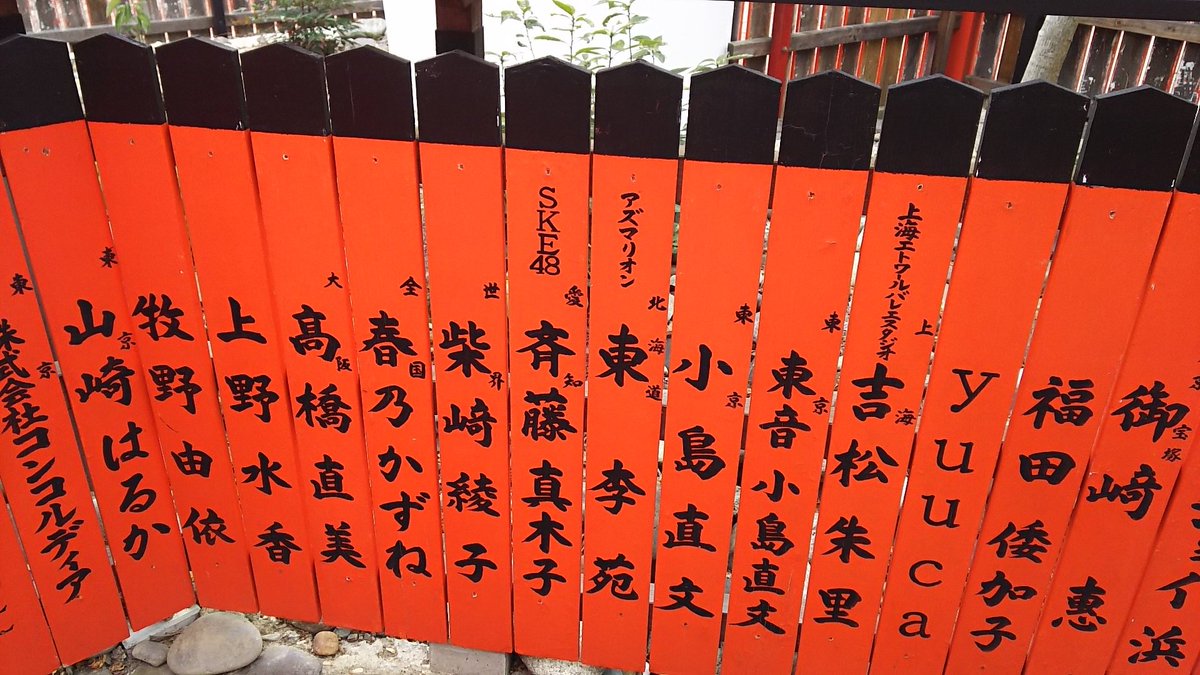 イ浜
宝塚
御崎 恵
福田 倭加子
yuuca
上海エトワールバレエスタジオ
上海
吉松朱里
東京
東音小島直文
東京
小島直文
アズマリオン
北海道
東 李苑
SKE48
愛知
斉藤真木子
世界
柴崎綾子
全国
春乃かずね
大阪
高橋直美
上野水香
牧野由依
東京
山崎はるか
東京
株式会社コンコルディア